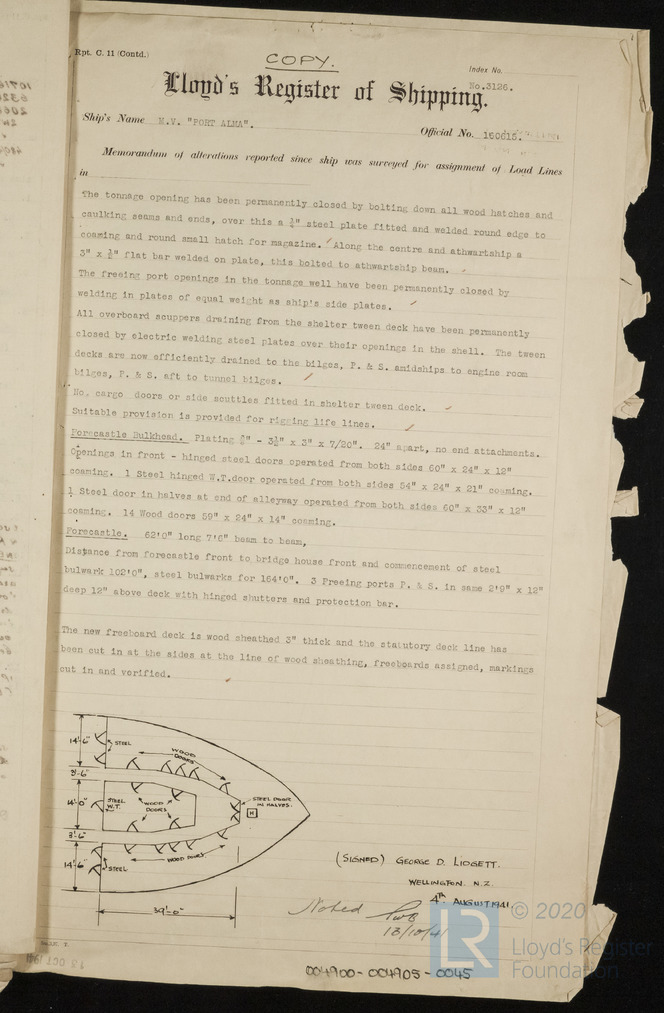 Rpt. C. 11 (Contd.)
COPY.
Index No.
No.3126.
Lloyd's Register of Shipping.
Ship's Name M.V. "PORT ALMA".
Official No. 160615.
Memorandum of alterations reported since ship was surveyed for assignment of Load Lines
in
The tonnage opening has been permanently closed by bolting down all wood hatches and
caulking seams and ends, over this a ¾" steel plate fitted and welded round edge to
coaming and round small hatch for magazine. Along the centre and athwartship a
3" x ¾" flat bar welded on plate, this bolted to athwartship beam.
The freeing port openings in the tonnage well have been permanently closed by
welding in plates of equal weight as ship's side plates.
All overboard scuppers draining from the shelter tween deck have been permanently
closed by electric welding steel plates over their openings in the shell. The tween
decks are now efficiently drained to the bilges, P. & S. amidships to engine room
bilges, P. & S. aft to tunnel bilges.
No. cargo doors or side scuttles fitted in shelter tween deck.
Suitable provision is provided for rigging life lines.
Forecastle Bulkhead. Plating - 3½" x 3" x 7/20". 24" apart, no end attachments.
Openings in front - hinged steel doors operated from both sides 60" x 24" x 12"
coaming. 1 Steel hinged W.T.door operated from both sides 54" x 24" x 21" coaming.
1 Steel door in halves at end of alleyway operated from both sides 60" x 33" x 12"
coaming. 14 Wood doors 59" x 24" x 14" coaming.
Forecastle. 62'0" long 7'6" beam to beam,
Distance from forecastle front to bridge house front and commencement of steel
bulwark 102'0", steel bulwarks for 164'0". 3 Freeing ports P. & S. in same 2'9" x 12"
deep 12" above deck with hinged shutters and protection bar.
The new freeboard deck is wood sheathed 3" thick and the statutory deck line has
been cut in at the sides at the line of wood sheathing, freeboards assigned, markings
cut in and verified.
14'-6"
STEEL
WOOD
DOORS
3'-6"
14'-0"
STEEL
W.T.
WOOD
DOORS
STEEL DOOR
IN HALVES.
H
3'-6"
14'-6"
STEEL
WOOD DOORS
39'-0"
(SIGNED) GEORGE D. LIDGETT.
WELLINGTON. N.Z.
4TH AUGUST 1941.
Noted
13/10/41
004900-004905-0045
LR
© 2020
Lloyd's Register
Foundation